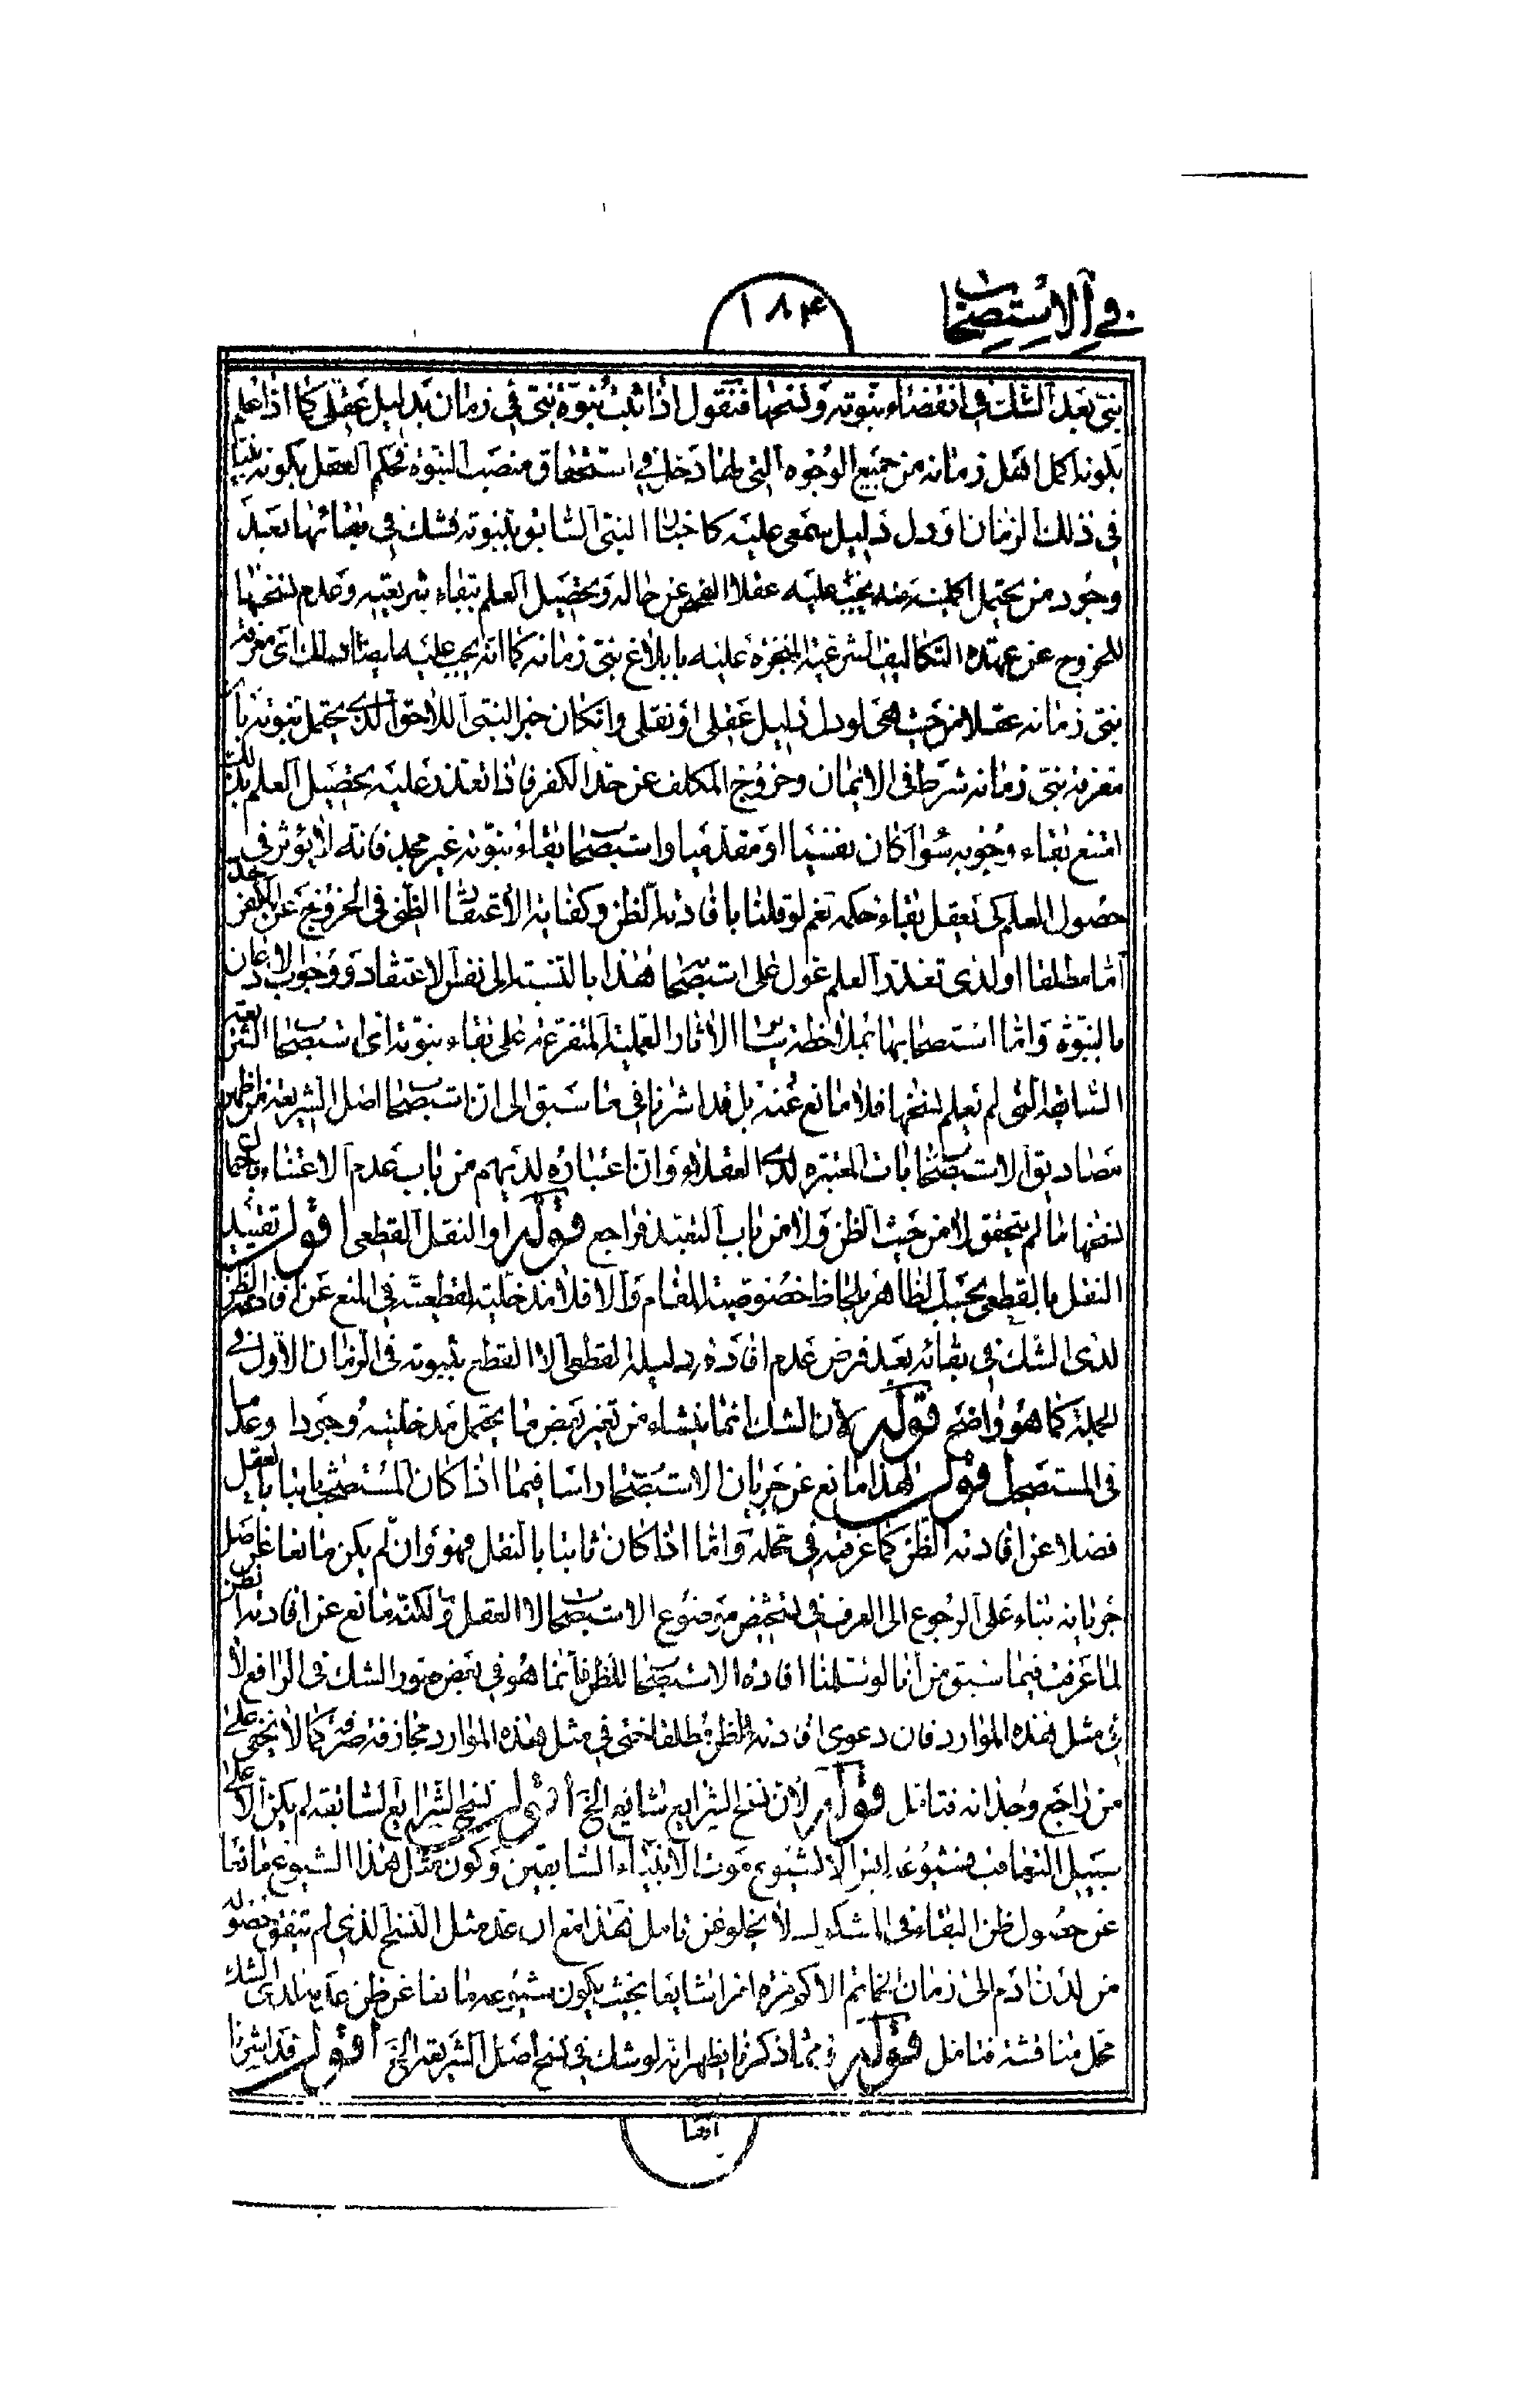 في الاستصحاب
١٨٤
نبي بعد الشك في انقضاء نبوته ونسخها فنقول اذا ثبت نبوة نبي في زمان بدليل عقلي كما اذا علم
بكونه اكمل اهل زمانه من جميع الوجوه التي لها دخل في استحقاق منصب النبوة فحكم العقل بكونه نبيا
في ذلك الزمان او دل دليل سمعي عليه كاخبار النبي السابق بنبوته فشك في بقائها بعد
وجود من يحتمل اكمليته منه يجب عليه عقلا الفحص عن حاله وتحصيل العلم ببقاء شريعته وعدم نسخها
للخروج عن عهدة التكاليف الشرعية المنجزة عليه بابلاغ نبي زمانه كما انه يجب عليه ايضا ذلك اي معرفة
نبي زمانه عقلا من حيث هي ولو دل دليل عقلي او نقلي وان كان خبر النبي اللاحق الذي يحتمل نبوته بان
معرفة نبي زمانه شرط في الايمان وخروج المكلف عن حد الكفر فاذا تعذر عليه تحصيل العلم بذلك
امتنع بقاء وجوبه سواء كان نفسيا او مقدميا واستصحاب بقاء نبوته غير مجد فانه لا يؤثر في
حصول العلم كي يعقل بقاء حكمه نعم لو قلنا بافادته الظن وكفاية الاعتقاد الظني في الخروج عن حد الكفر
اما مطلقا او لدى تعذر العلم عول على استصحابه هذا بالنسبة الى نفس الاعتقاد ووجوب الاذعان
بالنبوة واما استصحابها بملاحظة سائر الاثار العملية المتفرعة على بقاء نبوته اي استصحاب الشريعة
السابقة التي لم يعلم نسخها فلا مانع عنه بل قد اشرنا في ما سبق الى ان استصحاب اصل الشريعة من اظهر
مصاديق الاستصحابات المعتبرة لدى العقلاء وان اعتباره لديهم من باب عدم الاعتناء باحتمال
نسخها ما لم يتحقق لا من حيث الظن ولا من باب التعبد فراجع قوله او النقل القطعي اقول تقييد
النقل بالقطعي بحسب الظاهر بلحاظ خصوصية المقام والا فلا مدخلية لقطعيته في المنع عن افادته الظن
لدى الشك في بقائه بعد فرض عدم افادة دليله القطعي الا القطع بثبوته في الزمان الاول في
الجملة كما هو واضح قوله لان الشك انما ينشاء من تغير بعض ما يحتمل مدخليته وجودا وعدما
في المستصحب اقول هذا مانع عن جريان الاستصحاب راسا فيما اذا كان المستصحب ثابتا بالعقل
فضلا عن افادته الظن كما عرفته في محله واما اذا كان ثابتا بالنقل فهو وان لم يكن مانعا عن اصل
جريانه بناء على الرجوع الى العرف في تشخيص موضوع الاستصحاب لا العقل ولكنه مانع عن افادته الظن
لما عرفت فيما سبق من انا لو سلمنا افادة الاستصحاب للظن فانما هو في بعض صور الشك في الرافع لا
في مثل هذه الموارد فان دعوى افادته للظن مطلقا حتى في مثل هذه الموارد مجازفة صرفة كما لا يخفى على
من راجع وجدانه فتامل قوله لان نسخ الشرايع شايع الخ اقول نسخ الشرايع السابقة لم يكن الا على
سبيل التعاقب فشيوعه ليس الا كشيوع موت الانبياء السابقين وكون مثل هذا الشيوع مانعا
عن حصول ظن البقاء في المشكوك لا يخلو عن تامل هذا مع ان عد مثل النسخ الذي لم يتفق حصوله
من لدن ادم الى زمان الخاتم الا كم مرة امرا شايعا بحيث يكون شيوعه مانعا عن ظن عدمه لدى الشك
محل مناقشة فتامل قوله ومما ذكرنا يظهر انه لو شك في نسخ اصل الشريعة الخ اقول قد اشرنا
انفا